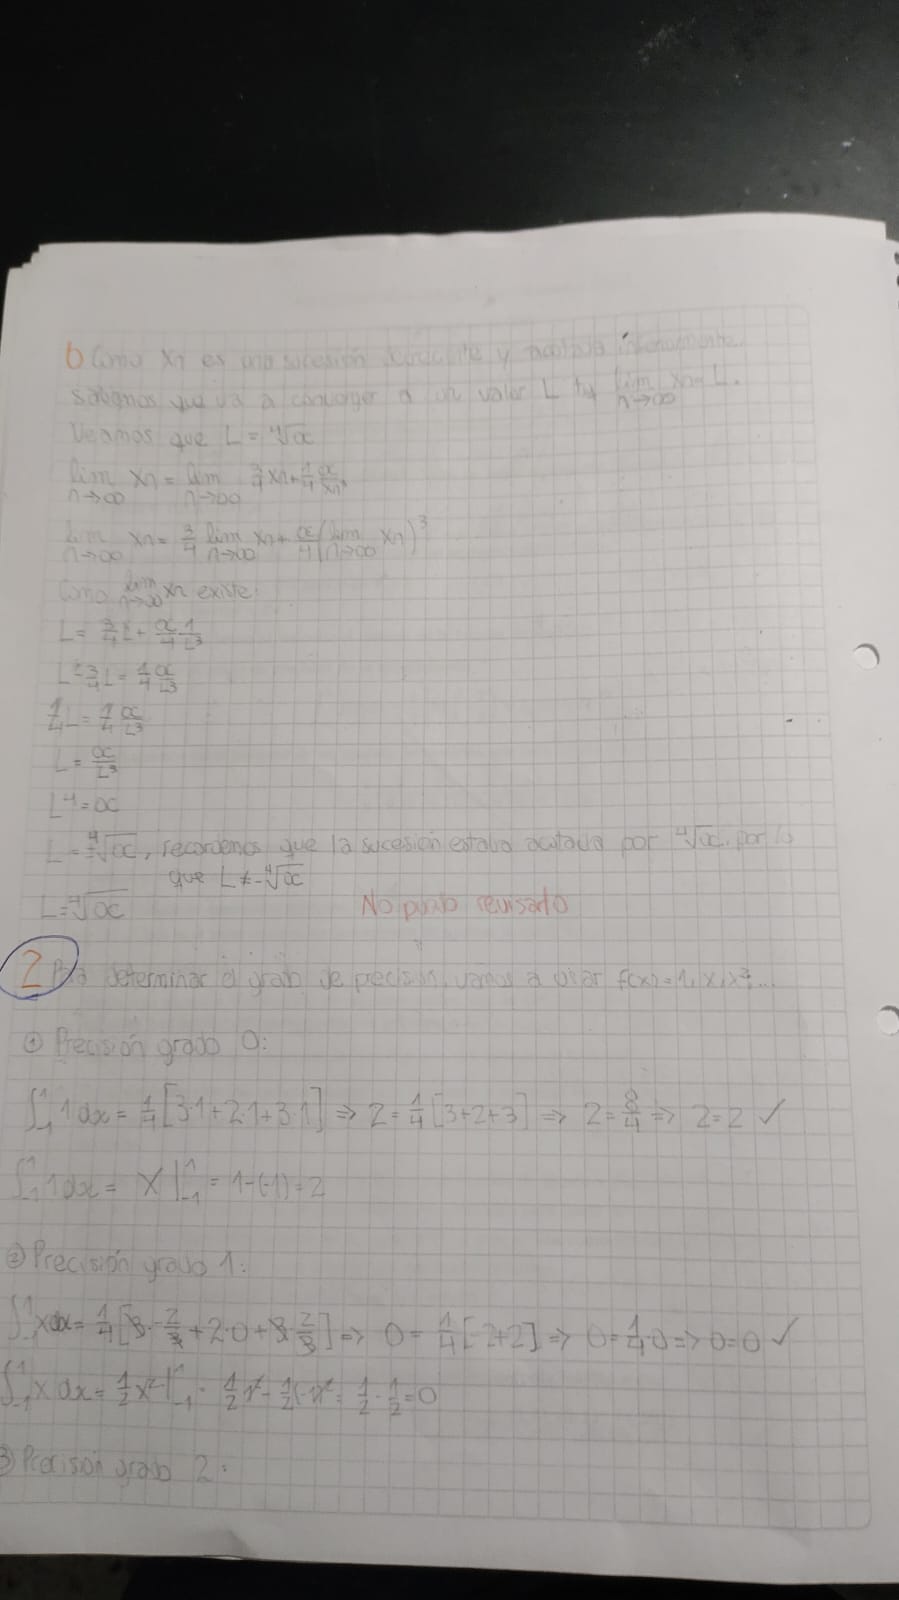 b Como xn es una sucesión decreciente y acotada inferiormente.
sabemos que va a converger a un valor L tq lim n→∞ xn = L.
Veamos que L = ∜α
lim n→∞ xn = lim n→∞ 3/4 xn + 1/4 α/xn³
lim n→∞ xn = 3/4 lim n→∞ xn + α/4(lim n→∞ xn)³
Como lim n→∞ xn existe:
L = 3/4 L + α/4 1/L³
L - 3/4 L = 1/4 α/L³
1/4 L = 1/4 α/L³
L = α/L³
L⁴ = α
L = ±∜α, recordemos que la sucesión estaba acotada por ∜α, por lo
que L ≠ -∜α
L = ∜α
No punto revisado
2 Para determinar el grado de precisión, vamos a usar f(x) = 1, x, x², ...
① Precisión grado 0:
∫₋₁¹ 1 dx = 1/4 [3·1 + 2·1 + 3·1] ⇒ 2 = 1/4 [3+2+3] ⇒ 2 = 8/4 ⇒ 2=2 ✓
∫₋₁¹ 1 dx = x |₋₁¹ = 1-(-1) = 2
② Precisión grado 1:
∫₋₁¹ x dx = 1/4 [3·-2/3 + 2·0 + 3·2/3] ⇒ 0 = 1/4 [-2+2] ⇒ 0 = 1/4·0 ⇒ 0=0 ✓
∫₋₁¹ x dx = 1/2 x² |₋₁¹ = 1/2 1² - 1/2 (-1)² = 1/2 - 1/2 = 0
③ Precisión grado 2: